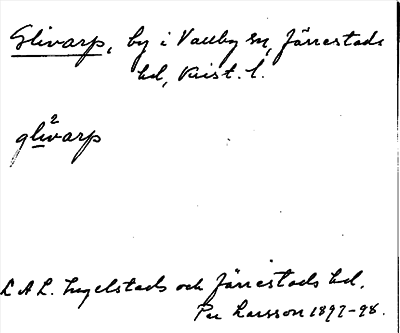 Glivarp, by i Vallby sn, Järrestads
hd, Krist. l.
gli²varp
L A L. Ingelstads och Järrestads hd.
Per Larsson 1897-98.